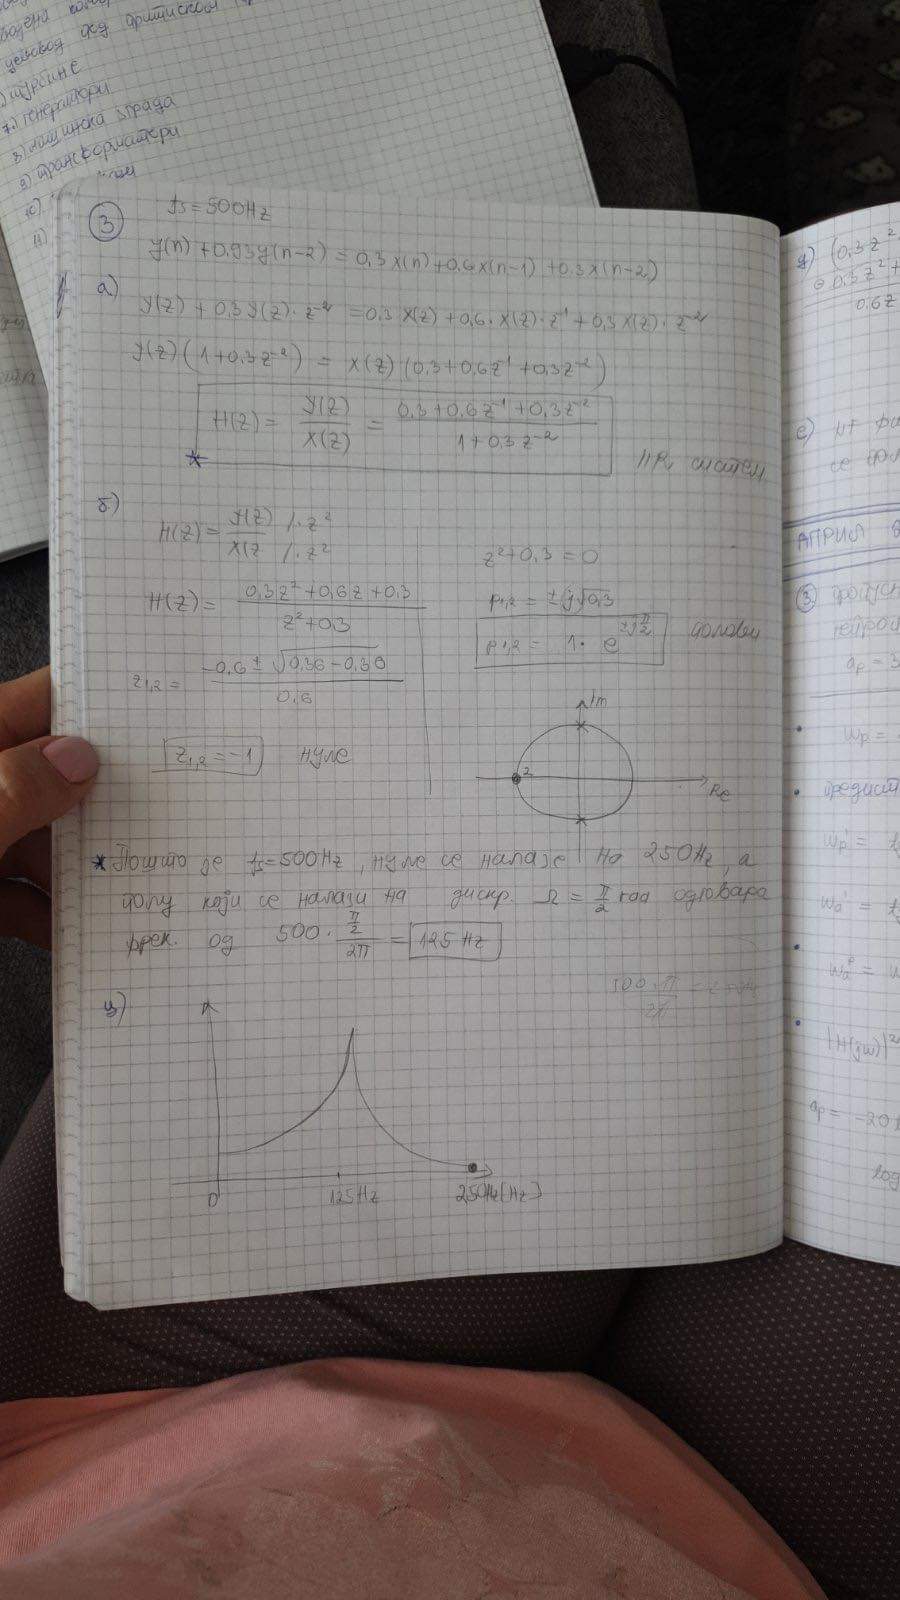 7.) генератори
8) машинска зграда
9) трансформатори
10)
11)
③ fs = 500Hz
y(n) + 0,93y(n-2) = 0,3x(n) + 0,6x(n-1) + 0,3x(n-2)
а)
Y(z) + 0,3Y(z)·z⁻² = 0,3X(z) + 0,6·X(z)·z⁻¹ + 0,3X(z)·z⁻²
Y(z)(1+0,3z⁻²) = X(z)(0,3+0,6z⁻¹+0,3z⁻²)
H(z) = Y(z)/X(z) = (0,3+0,6z⁻¹+0,3z⁻²)/(1+0,3z⁻²)
* IIR систем
б)
H(z) = Y(z)/X(z /·z² /·z²
H(z) = (0,3z²+0,6z+0,3)/(z²+0,3)
z1,2 = (-0,6±√(0,36-0,36))/0,6
z1,2 = -1 нуле
z²+0,3=0
p1,2 = ±j√0,3
p1,2 = 1·e^(±jπ/2) полови
Im
2
Re
* Пошто је fs=500Hz, нуле се налазе на 250Hz, а
полу који се налази на дискр. Ω = π/2 rad одговара
фрек. од 500·(π/2)/(2π) = 125 Hz
ц)
0 125Hz 250Hz[Hz]
g) (0,3z²
⊖ 0,3z²+
0,6z
е)
АПРИЛ
③
ap = 3
wp =
wp'
wa'
|H(jw)|²
ap = -20
log